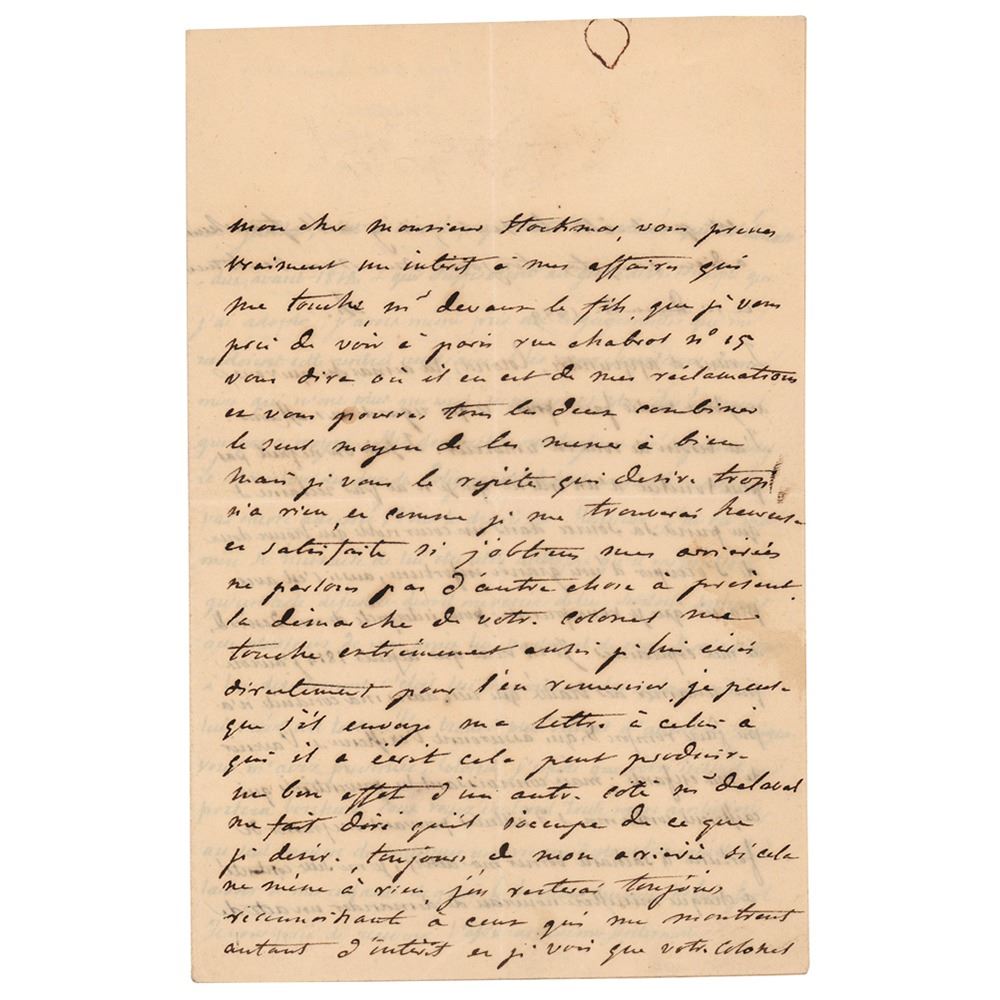 mon cher monsieur Stockmar, vous prenes
vraiment un intérêt à mes affaires qui
me touche, mr devaux le fils, que je vous
prie de voir à paris rue chabrol n° 15
vous dira où il en est de mes réclamations
et vous pourres tous les deux combiner
le seul moyen de les mener à bien
mais je vous le répète qui desire trop
n'a rien, et comme je me trouverai heureuse
et satisfaite si j'obtiens mes arrierés
ne parlons pas d'autre chose à présent.
la démarche de votre colonel me
touche extrêmement aussi je lui écris
directement pour l'en remercier, je pense
que s'il envoye ma lettre à celui à
qui il a écrit cela peut produire
un bon effet d'un autre côté mr delaval
me fait dire qu'il s'occupe de ce que
je desire, toujours de mon arrieré si cela
ne mène à rien, j'en resterai toujours
reconnoissant à ceux qui me montrent
autant d'intérêt et je vois que votre colonel